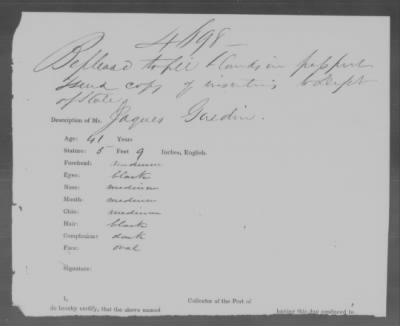 4698-
Be pleased to fill blanks in passport
send copy of insertions to Dept
of State
Description of Mr. Jaques
Age: 41 Years
Stature: 5 Feet 9 Inches, English.
Forehead: medium
Eyes: black
Nose: medium
Mouth: medium
Chin: medium
Hair: black
Complexion: dark
Face: oval
Signature:
I, Collector of the Port of
do hereby certify, that the above named having this day produced to